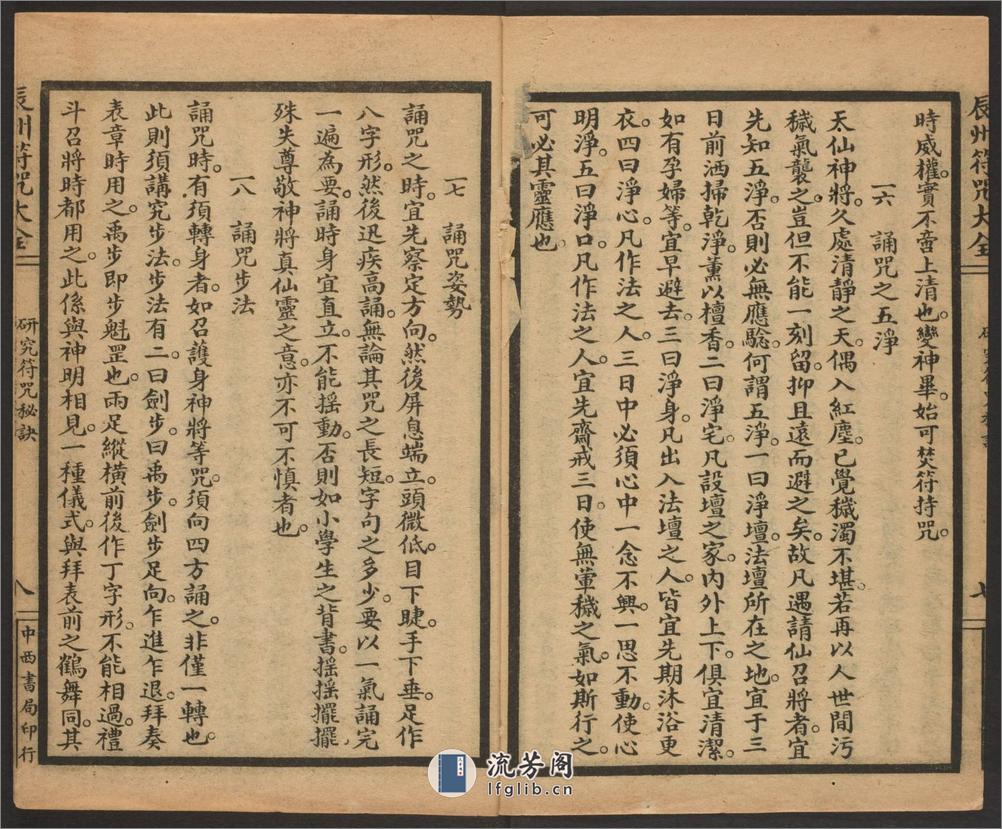 辰州符咒大全
七
時威權。實不啻上清也。變神畢。始可焚符持咒。
一六　誦咒之五淨
天仙神將。久處清靜之天。偶入紅塵。已覺穢濁不堪。若再以人世間污
穢氣襲之。豈但不能一刻留。抑且遠而避之矣。故凡遇請仙召將者。宜
先知五淨。否則必無應驗。何謂五淨。一曰淨壇。法壇所在之地。宜于三
日前洒掃乾淨。薰以檀香。二曰淨宅。凡設壇之家。內外上下。俱宜清潔。
如有孕婦等。宜早避去。三曰淨身。凡出入法壇之人。皆宜先期沐浴更
衣。四曰淨心。凡作法之人。三日中必須心中一念不興。一思不動。使心
明淨。五曰淨口。凡作法之人。宜先齋戒三日。使無葷穢之氣。如斯行之。
可必其靈應也。
一七　誦咒姿勢
誦咒之時。宜先察定方向。然後屏息端立。頭微低。目下睫。手下垂。足作
八字形。然後迅疾高誦。無論其咒之長短。字句之多少。要以一氣誦完
一遍為要。誦時身宜直立。不能搖動。否則如小學生之背書。搖搖擺擺
殊失尊敬神將真仙靈之意。亦不可不慎者也。
一八　誦咒步法
誦咒時。有須轉身者。如召護身神將等咒。須向四方誦之。非僅一轉也。
此則須講究步法。步法有二。曰劍步。曰禹步。劍步足向乍進乍退。拜奏
表章時用之。禹步即步魁罡也。兩足縱橫前後作丁字形。不能相過。禮
斗召將時都用之。此係與神明相見。一種儀式。與拜表前之鶴舞同。其
辰州符咒大全
研究符咒秘訣
八
中西書局印行
流芳阁
lfglib.cn